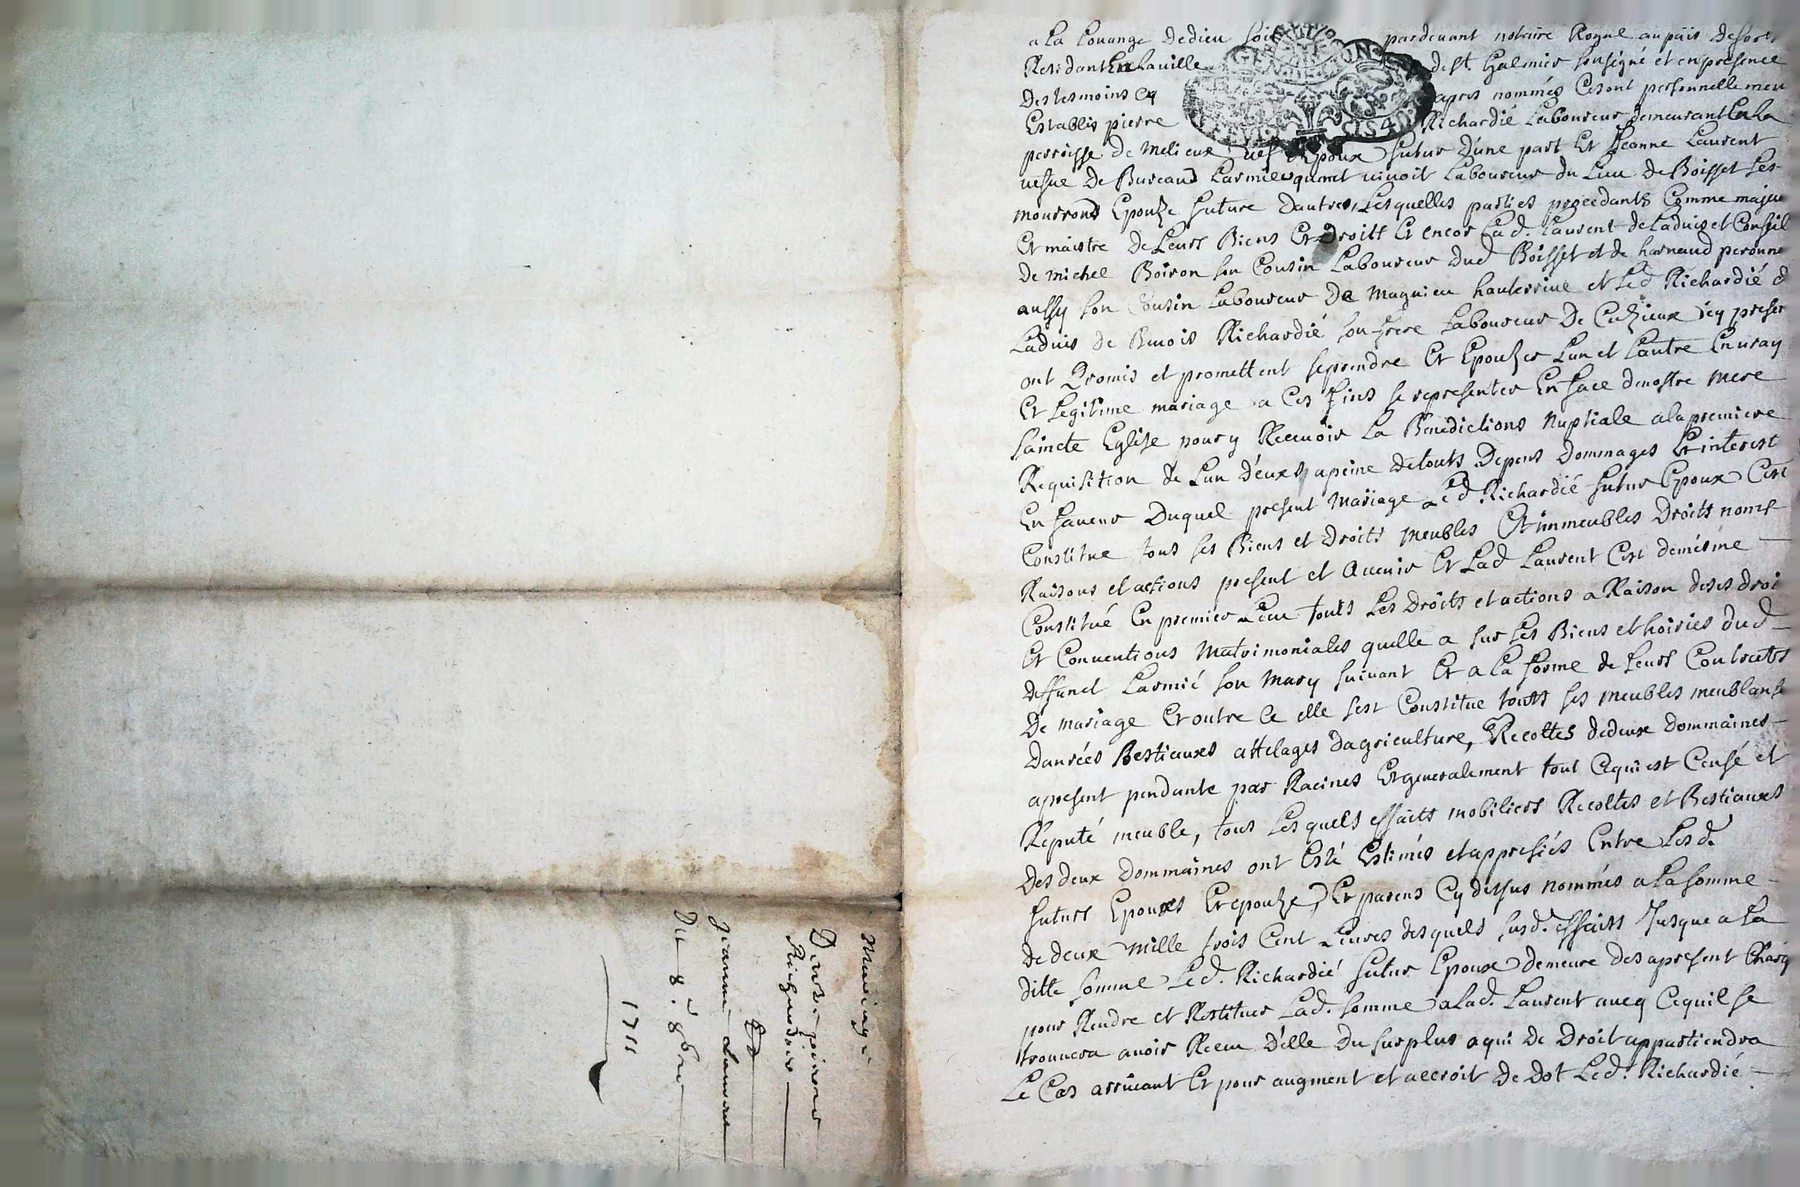 Mariage
Dentre pierre
Richardier
Et
Jeanne Laurent
Du 8.e 8bre
1711
a La Louange de dieu soit pardevant notaire Royal au païs de forests
Residant En La ville de St. Galmier soussigné et en presence
Des tesmoins Cy apres nommés Ce sont personnellemen
Establis pierre Richardié Laboureur demeurant En La
perroisse de Melieux Epoux futur d'une part Et Jeanne Laurent
vefue De Bureand Larmier quand vivoit Laboureur du Lieu de Boisset Les
mourrond Epouse future dautres, Lesquelles parties procedants Comme majeur
Et maistre de Leurs Biens Et Droitt Et encor Lad. Laurent de Laduis et Conseil
de michel Boiron son Cousin Laboureur dud Boisset et de harnaud peronne
aussy son Cousin Laboureur De Magnieu hauterive et Led Richardié d
Laduis de Benois Richardié son frere Laboureur De Cuzieux icy presen
ont Promis et promettent se prendre Et Epouser Lun et Lautre En vray
Et Legitime mariage a Ces fins se representer En face de nostre mere
saincte Eglise pour y Recevoir La Benedictions Nuptiale a la premiere
Requisition de Lun d'eux a peine de touts Depens dommages Et interest
En faveur Duquel present Mariage Led. Richardié futur Epoux C'est
Constitue tous ses Biens et droits Meubles Et immeubles Droits noms
Raisons et actions present et Avenir Et Lad Laurent C'est demesme
Constitué En premier Lieu touts Les Droits et actions a Raison de ses droi
Et Conventions Matrimoniales quelle a sur Les Biens et hoiries dud
deffunct Larmié son Mary suivant Et a La forme de Leurs Contracts
De mariage Et outre Ce elle sest Constitue touts ses meubles meublans
Danrées Bestiaux attelages dagriculture, Recoltes de deux dommaines
apresent pendante par Racines Et generalement tout Ce qui est Censé et
Reputé meuble, tous Lesquels effaits mobiliers Recoltes et Bestiaux
Des deux dommaines ont Esté Estimés et appresiés Entre Lesd.
futurs Epoux Et epouse Et parens Cy dessus nommés a La somme
de deux mille trois Cent Livres desquels susd. effaits Jusque a La
ditte somme Led. Richardié futur Epoux demeure des apresent Charg
pour Rendre et Restituer Lad. somme a Lad. Laurent avec Ce quil se
trouvera avoir Receu D'elle Du surplus a qui de Droit appartiendra
Le Cas arrivant Et pour augment et accroit De Dot Led. Richardié